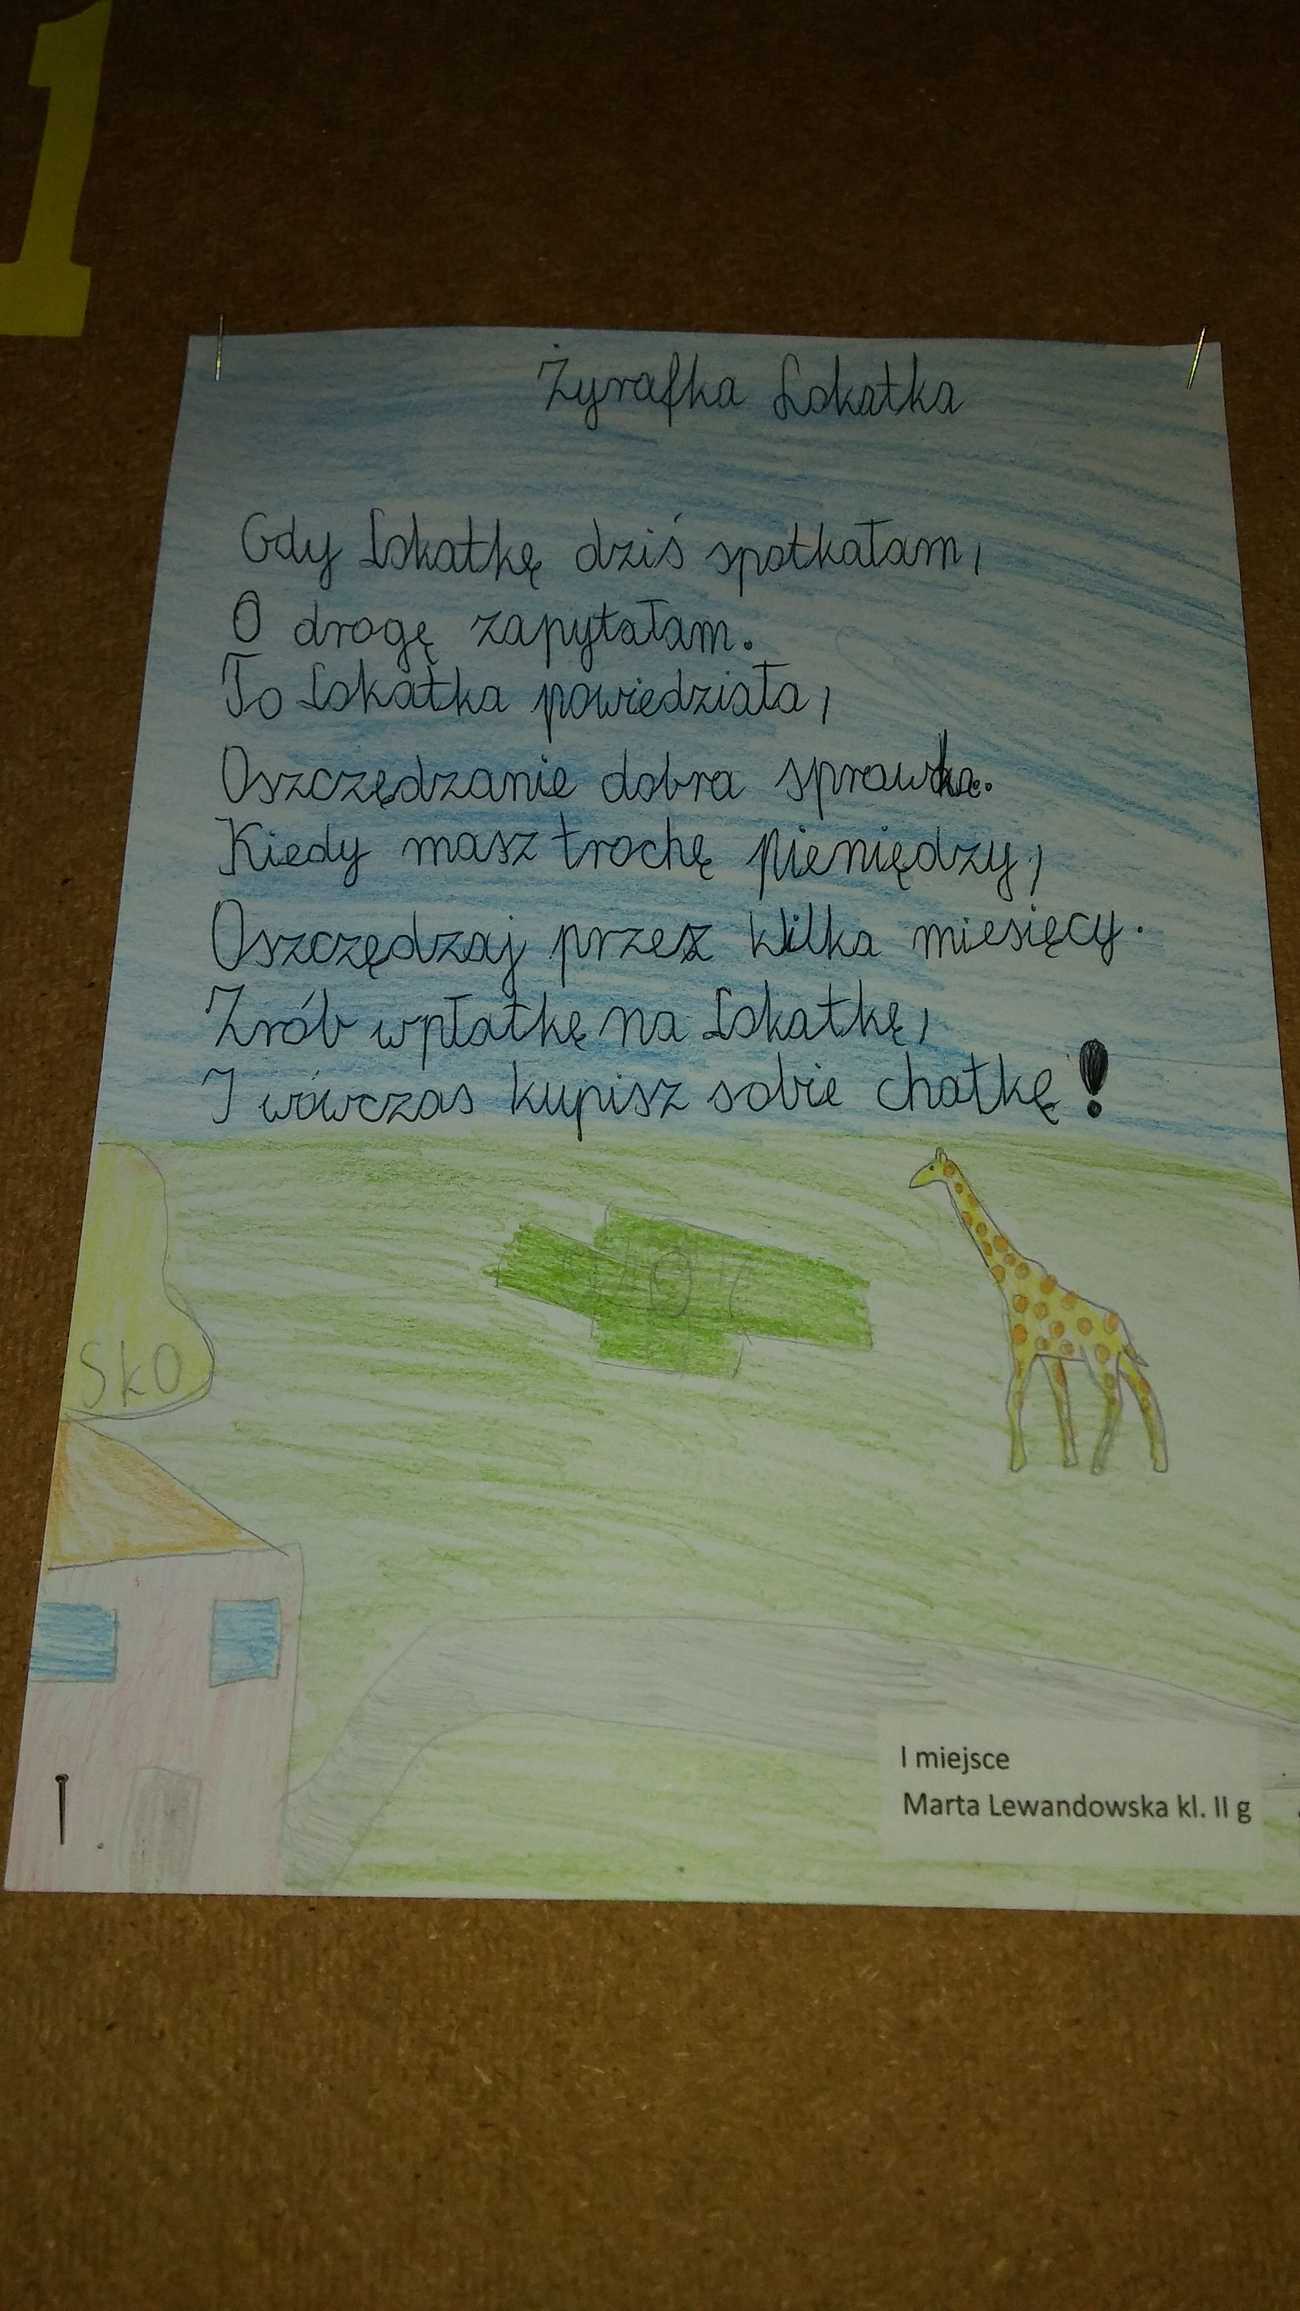 1
Żyrafka Lokatka
Gdy Lokatkę dziś spotkałam,
O drogę zapytałam.
To Lokatka powiedziała,
Oszczędzanie dobra sprawka.
Kiedy masz trochę pieniędzy,
Oszczędzaj przez kilka miesięcy.
Zrób wpłatkę na Lokatkę,
I wówczas kupisz sobie chatkę!
SKO
I miejsce
Marta Lewandowska kl. II g